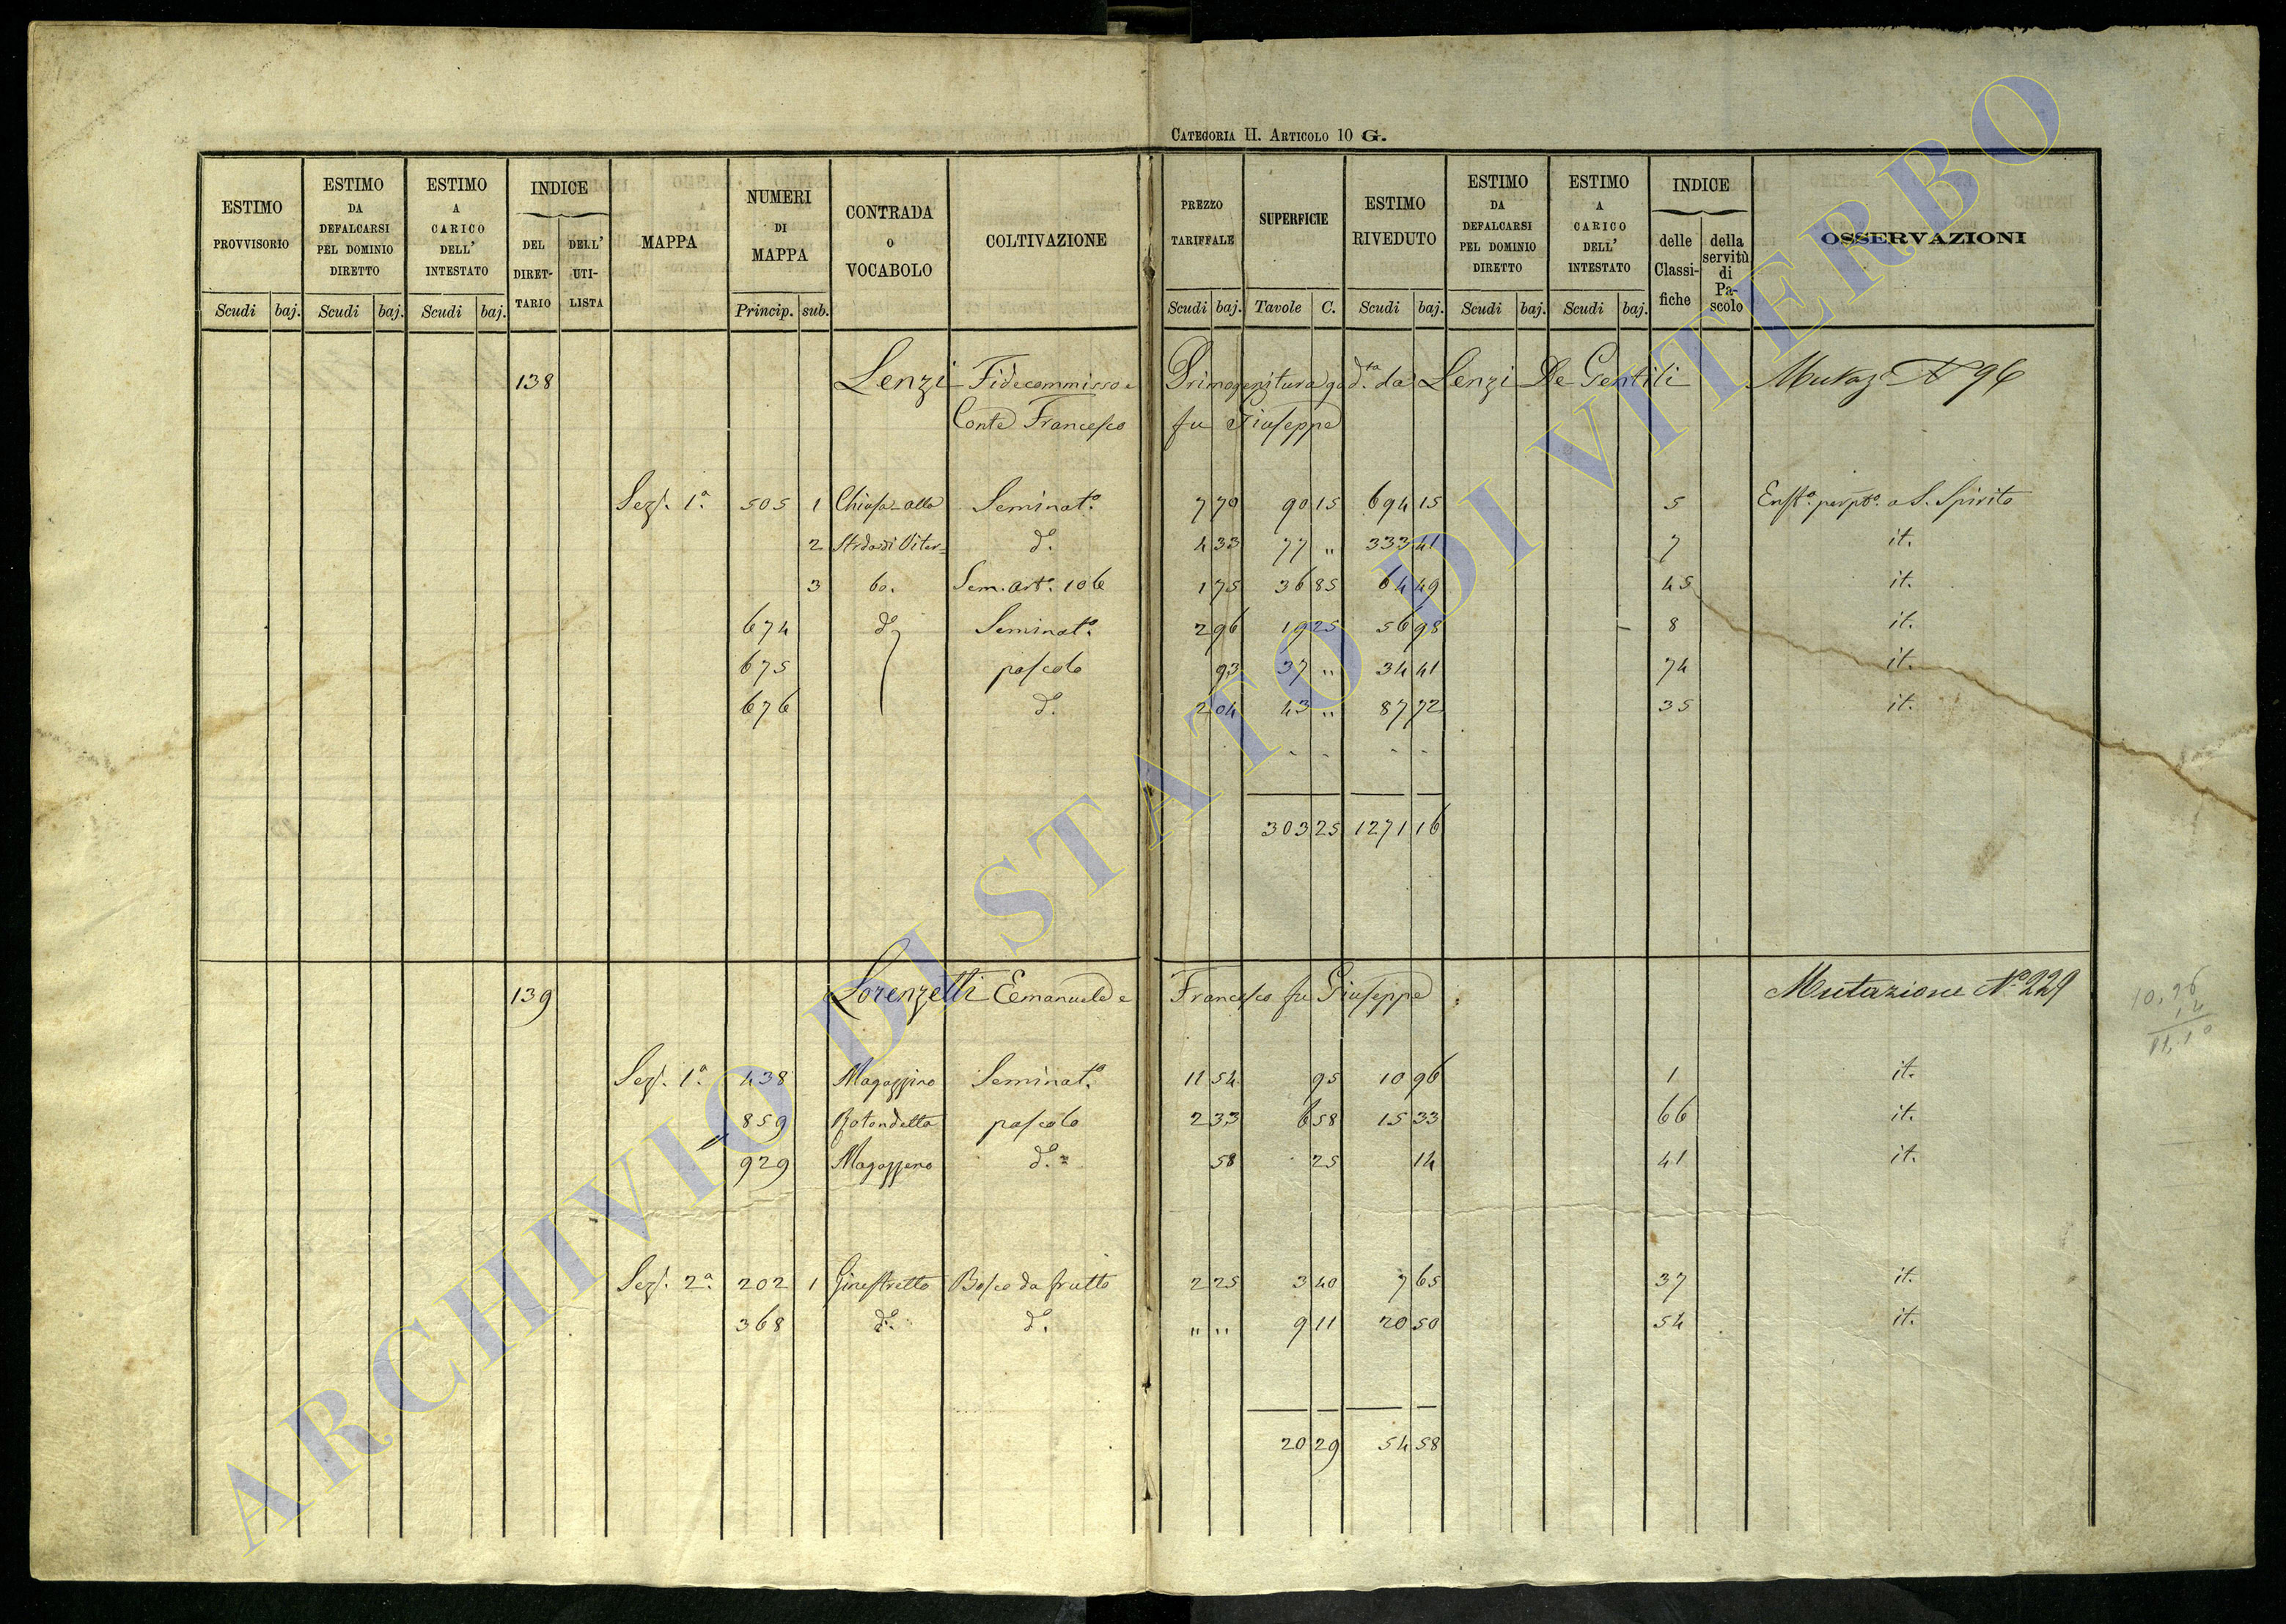 CATEGORIA II. ARTICOLO 10 G.
ESTIMO PROVVISORIO Scudi baj.
ESTIMO DA DEFALCARSI PEL DOMINIO DIRETTO Scudi baj.
ESTIMO A CARICO DELL' INTESTATO Scudi baj.
INDICE DEL DIRETTARIO DELL' UTILISTA
MAPPA
NUMERI DI MAPPA Princip. sub.
CONTRADA O VOCABOLO
COLTIVAZIONE
PREZZO TARIFFALE Scudi baj.
SUPERFICIE Tavole C.
ESTIMO RIVEDUTO Scudi baj.
ESTIMO DA DEFALCARSI PEL DOMINIO DIRETTO Scudi baj.
ESTIMO A CARICO DELL' INTESTATO Scudi baj.
INDICE delle Classifiche della servitù di Pascolo
OSSERVAZIONI
138 Lenzi Fidecommisso e Primogenitura da Lenzi De Gentili Mutaz. N° 96
Conte Francesco fu Giuseppe
Sez. 1ª 505 1 Seminat.º 7 70 90 15 694 15 5 a S. Spirito
2 Strada di Viter= d.º 4 33 77 " 333 41 7 it.
3 bo. Sem. art.º 10 6 1 75 36 85 64 49 45 it.
674 d.º Seminat.º 2 96 19 25 56 98 8 it.
675 pascolo 93 37 " 34 41 74 it.
676 d.º 2 04 43 " 87 72 35 it.
303 25 1271 16
139 Lorenzetti Emanuele e Francesco fu Giuseppe Mutazione N.º 229
Sez. 1ª 438 Magazzino Seminat.º 11 54 95 10 96 1 it.
859 Rotondella pascolo 2 33 6 58 15 33 66 it.
929 Magazzeno d.º 58 25 14 41 it.
Sez. 2ª 202 1 Ginestretto Bosco da frutto 2 25 3 40 7 65 37 it.
368 d.º d.º " " 9 11 20 50 54 it.
20 29 54 58
ARCHIVIO DI STATO DI VITERBO